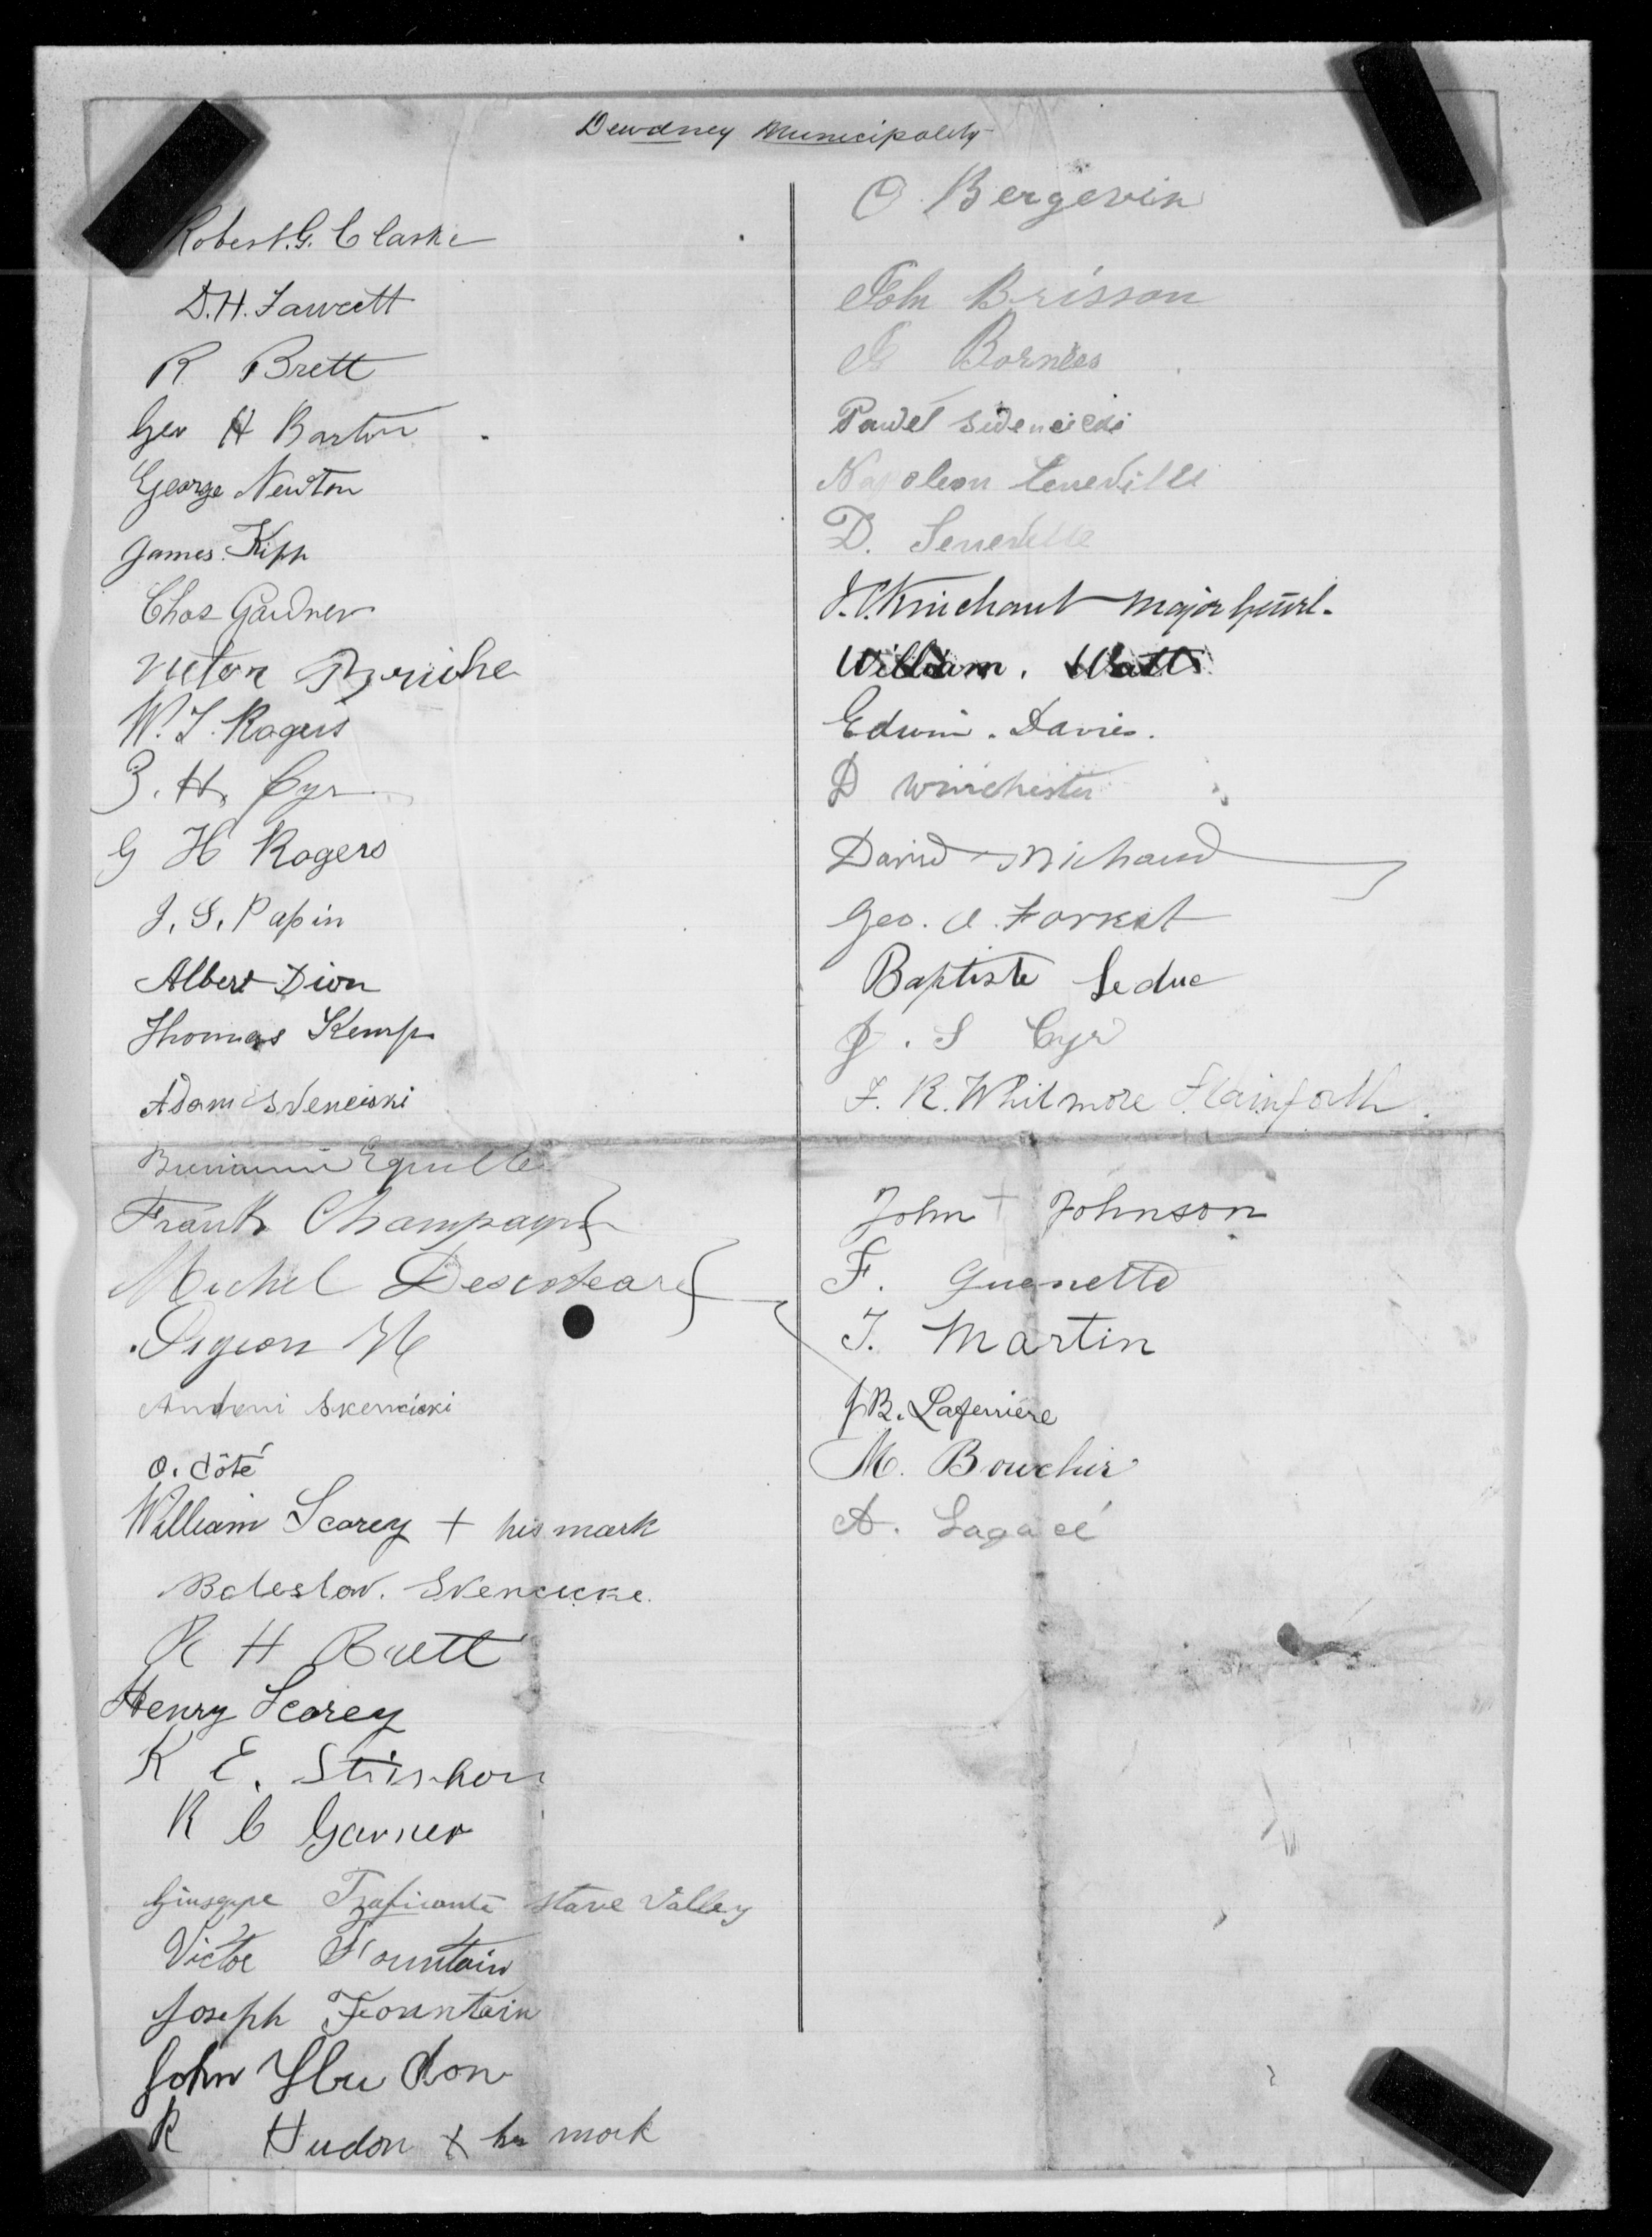 Dewdney Municipality
Robert. G. Clarke
D. H. Fawcett
R Brett
Geo H Barton
George Newton
James Kipp
Chas Gardner
Victor
W. J. Rogers
Z. H. Cyr
G H Rogers
J. S. Papin
Albert Dion
Thomas Kemp
Adam
Frank Champagne
Michel
Pigeon
Skencicki
O. Côté
William Scorey + his mark
Boleslav.
R H Brett
Henry Scorey
K E.
R C Garner
Giuseppe Traficante Stave Valley
Victor Fountain
Joseph Fountain
John Hudon
R Hudon x his mark
O. Bergevin
John Brisson
Pawel
Napoleon Seneville
D. Seneville
Major Genrl.
William. Watt
Edwin. Davies.
D Winchester
David Michaud
Geo. A. Forrest
Baptiste Leduc
J. S Cyr
F. R. Whitmore Stainforth
John + Johnson
F. Guenette
T. Martin
J B. Laferriere
M. Boucher
A. Lagacé